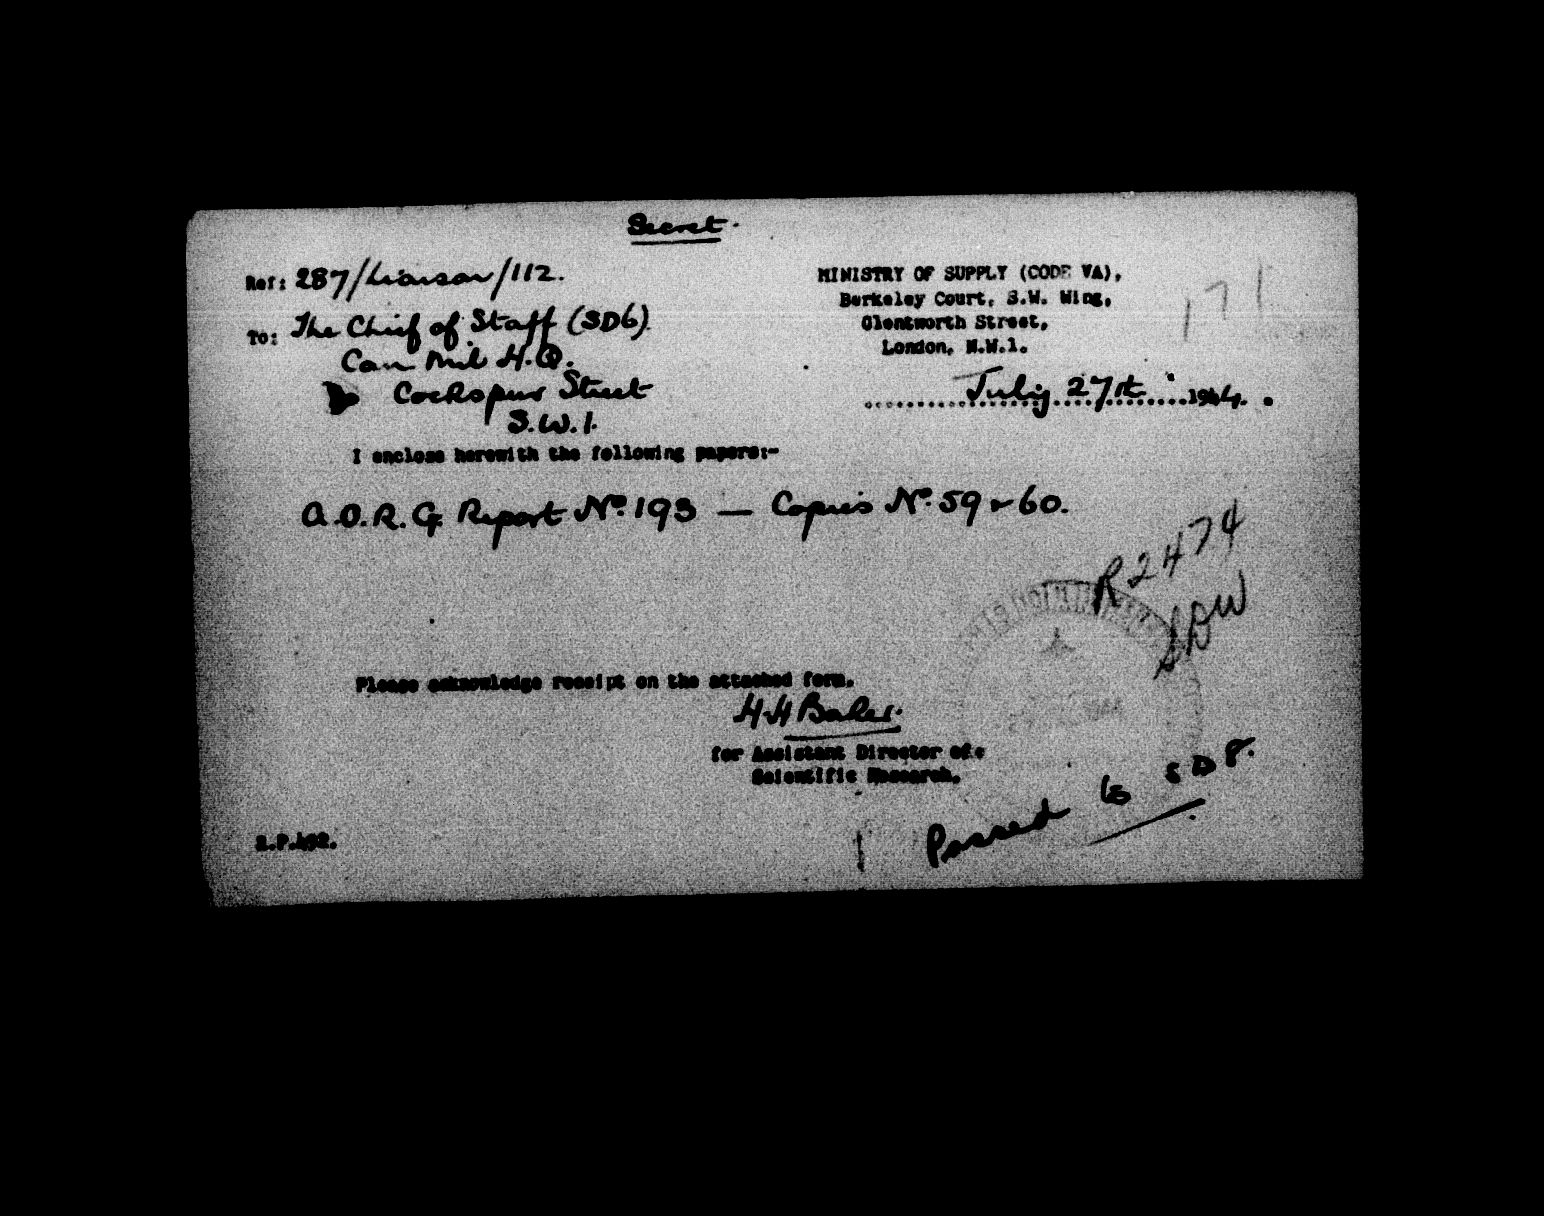 Secret.
Ref: 287/Liaison/112.
To: The Chief of Staff (SD6).
Can Mil H.Q.
Cockspur Street
S.W.1.
MINISTRY OF SUPPLY (CODE VA),
Berkeley Court, S.W. Wing,
Glentworth Street,
London, N.W.1.
171
July 27th 1944.
I enclose herewith the following papers:-
A.O.R.G. Report No. 193 — Copies No. 59 & 60.
R2474
Please acknowledge receipt on the attached form.
H H Baker.
for Assistant Director of
Scientific Research.
1944
Passed to SD8.